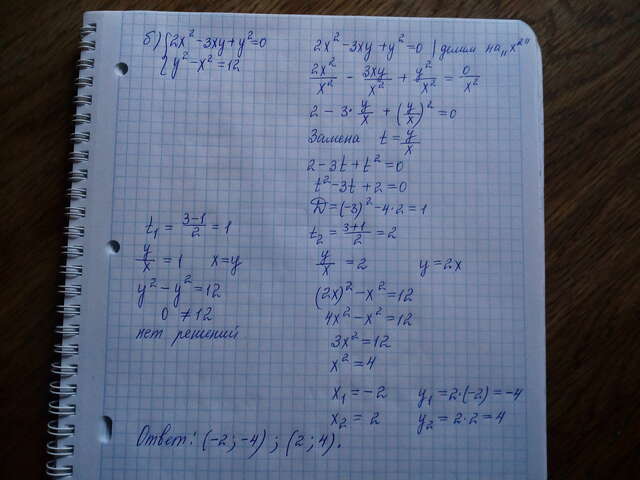 б) {2x²-3xy+y²=0
{y²-x²=12
2x²-3xy+y²=0 | делим на „x²"
2x²/x² - 3xy/x² + y²/x² = 0/x²
2-3·y/x + (y/x)² = 0
Замена t = y/x
2-3t+t²=0
t²-3t+2=0
D=(-3)²-4·2=1
t₁ = (3-1)/2 = 1
y/x = 1 x=y
y²-y²=12
0 ≠ 12
нет решений
t₂ = (3+1)/2 = 2
y/x = 2 y=2x
(2x)²-x²=12
4x²-x²=12
3x²=12
x²=4
x₁=-2 y₁=2·(-2)=-4
x₂ = 2 y₂ = 2·2=4
Ответ: (-2;-4) ; (2;4).